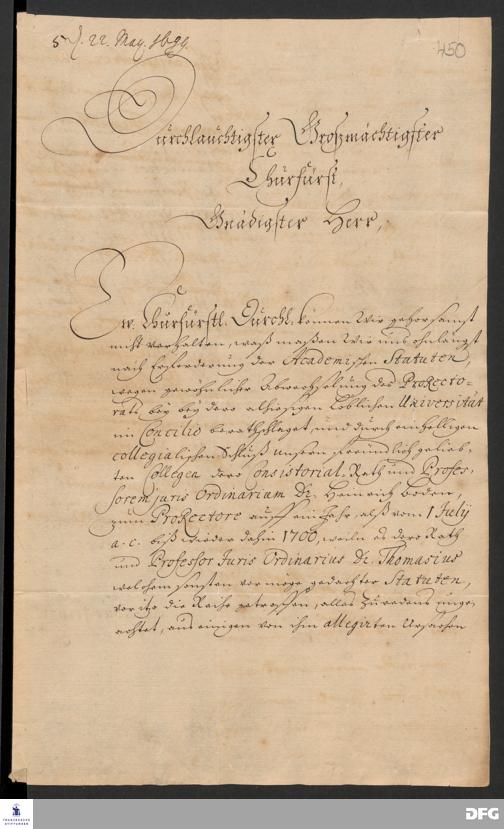 22. May. 1699.
450
Durchlauchtigster Großmächtigster
Churfürst,
Gnädigster Herr,
Ew. Churfürstl. Durchl. können Wir gehorsamst
nicht verhalten, waß maßen Wir uns ohnlängst
nach Erforderung der Academischen Statuten,
wegen gewöhnlicher Abwechselung des ProRecto-
rats, bey dero alhiesigen Löblichen Universität
im Concilio berathschlaget, und durch einhelligen
collegialischen Schluß unsern freundlich gelieb-
ten Collegen dero Consistorial-Rath und Profes-
sorem juris Ordinarium Dr. Heinrich Boden,
zum ProRectore auff ein Jahr, alß vom 1 July
a. c. biß wieder dahin 1700, weiln es dero Rath
und Professor Juris Ordinarius Dr. Thomasius
welchem sonsten vermöge gedachter Statuten,
vor itzo die Reihe getroffen, alles Zuredens unge-
achtet, aus einigen von ihm allegirten Ursachen
FRANCKESCHE
STIFTUNGEN
DFG